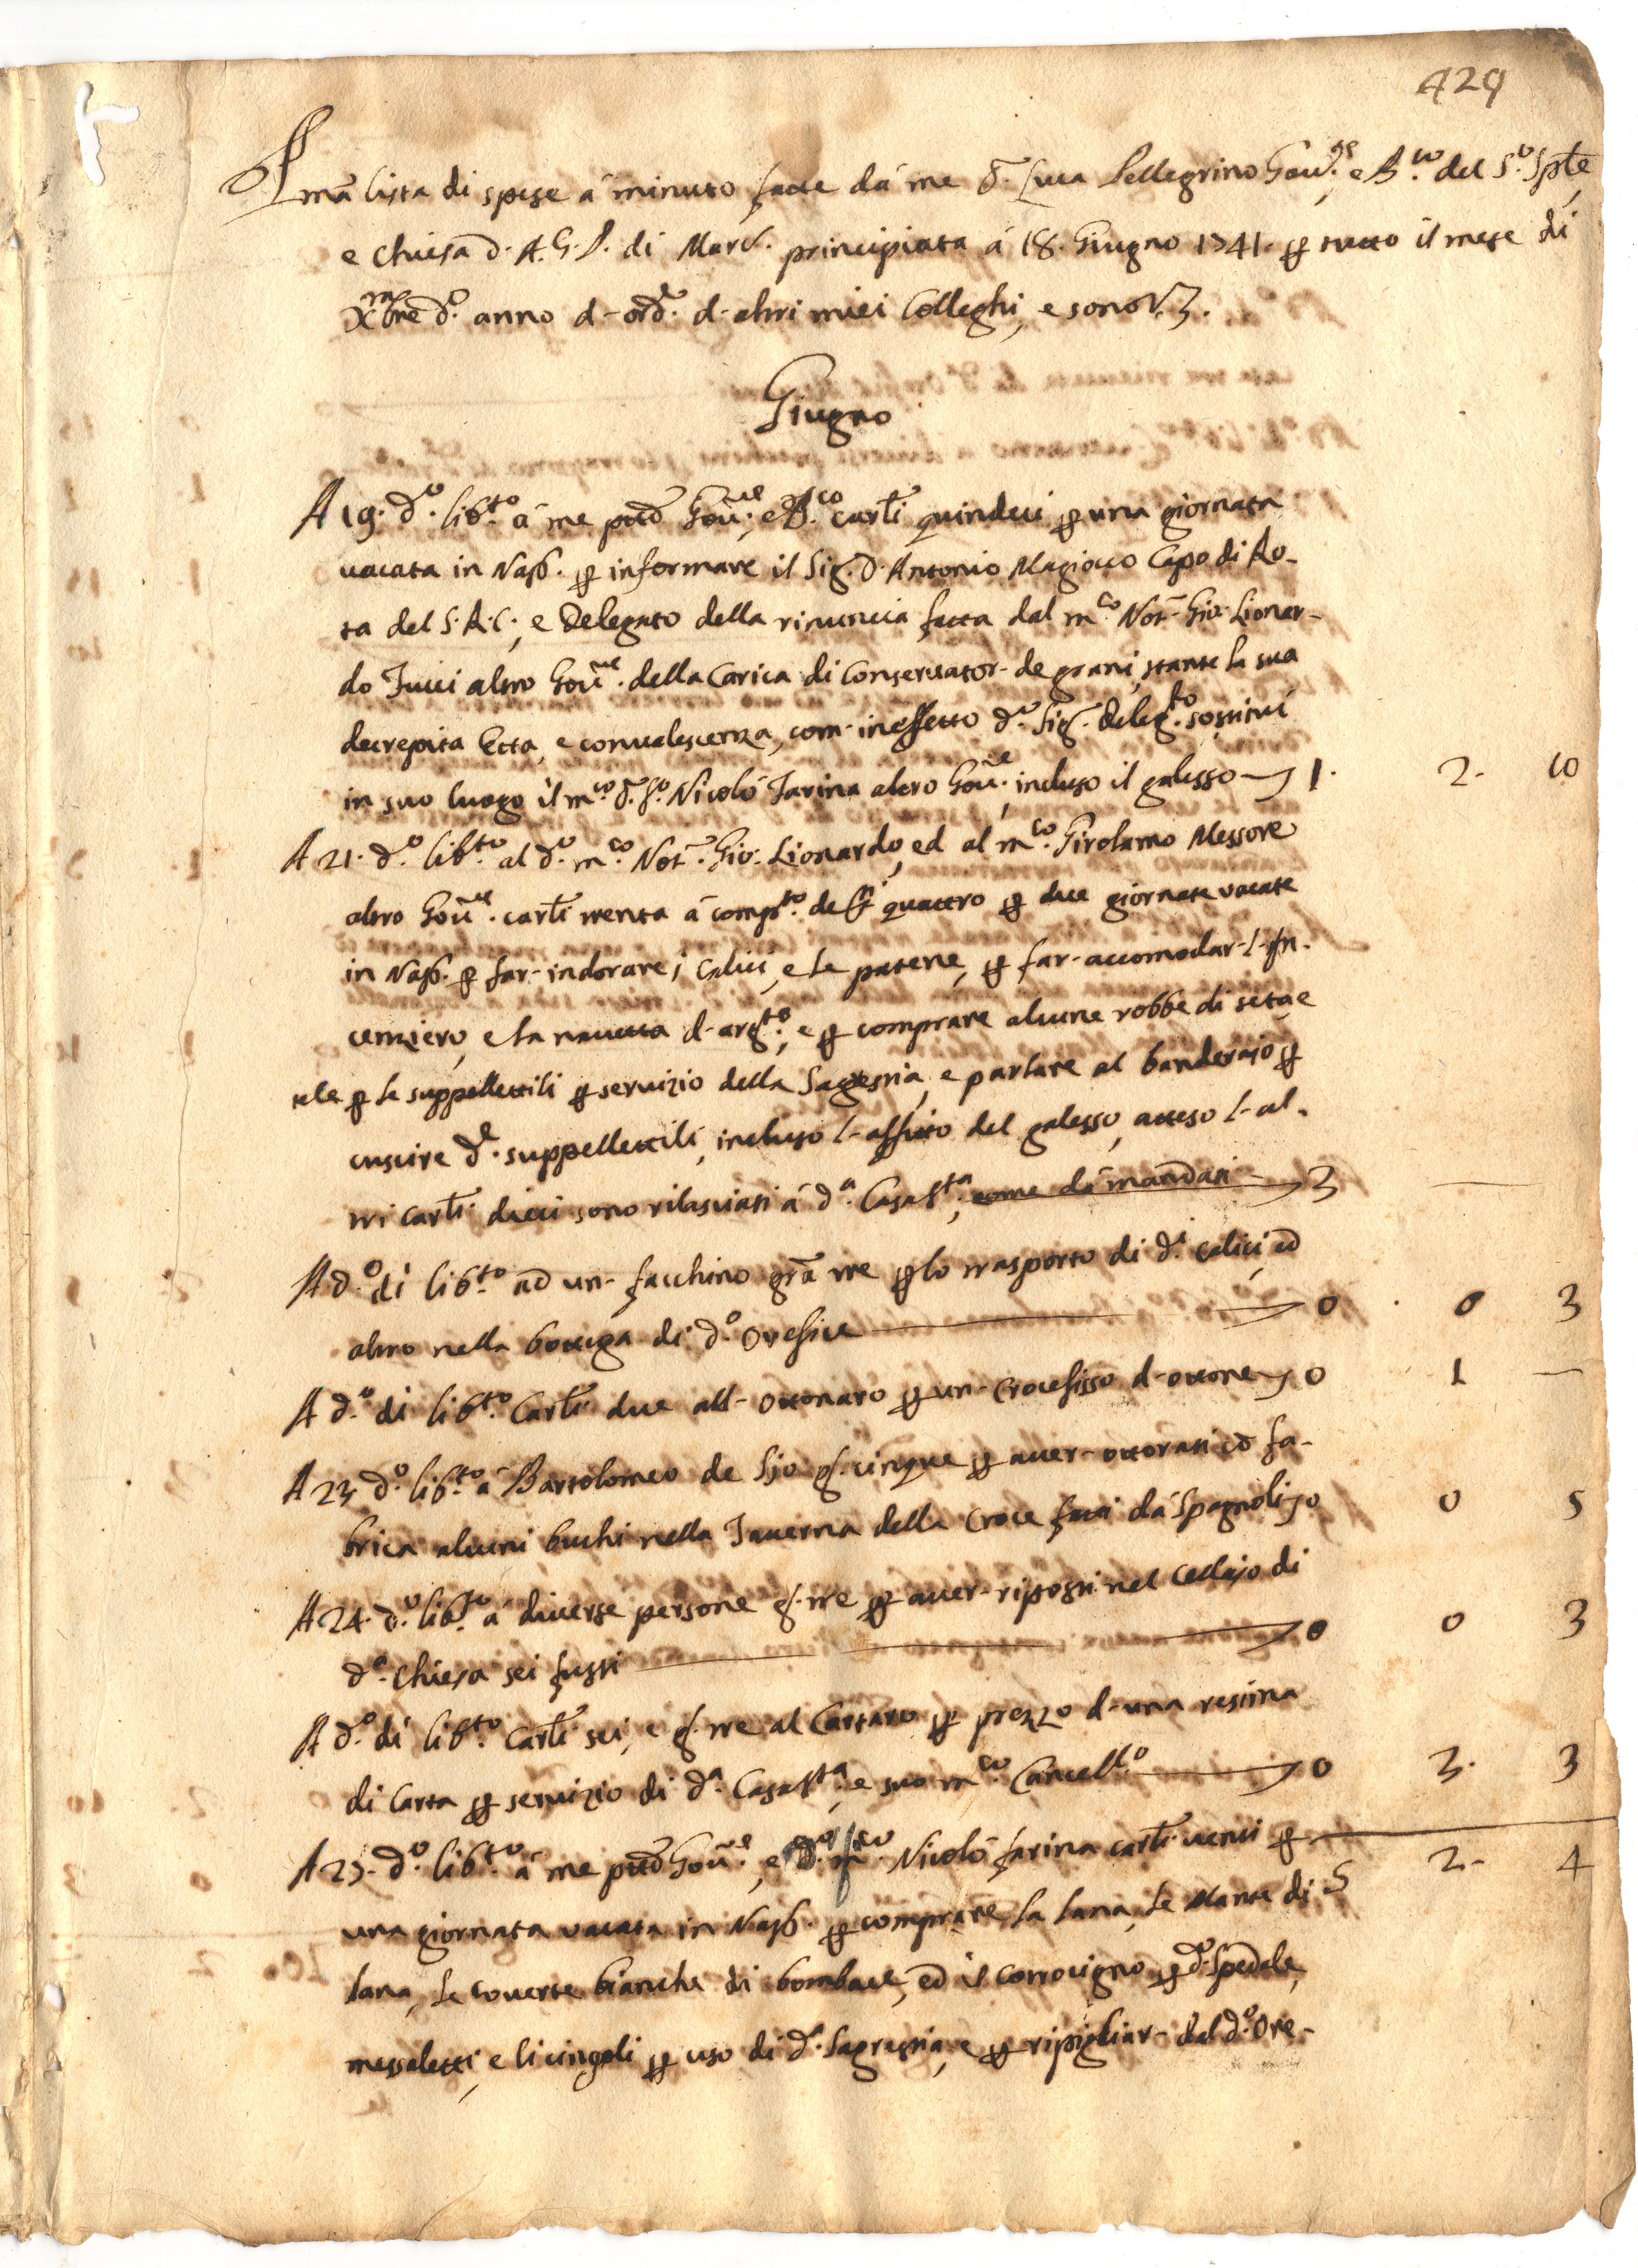 429
Pma lista di spese á minuto fatte dá me D. Luca Pellegrino Gov.re e B.co del S.o Sple,
e Chiesa d. A. G. P. di Marc. principiata á 18. Giugno 1741. per tutto il mese di
Xmbre d.o anno d- ord.e d- altri miei Colleghi, e sono V. 3.
Giugno
A 19. d.o lib.to á me ptto Gov.re, e B.co carli quindeci per una giornata
vacata in Nap. per informare il Sig. D. Antonio Magiocco Capo di Ro-
ta del S.R.C., e Delegato della rinuncia fatta dal m.co Not. Gio: Lionar-
do Iucci altro Gov.re della Carica di Conservator- de grani, stante la sua
decrepita Etta, e convalescenza, com- in effetto d.o Sig. Deleg.to sostituí
in suo luogo il m.co D. Nicoló Farina altro Gov.re, incluso il galesso 1. 2- 10
A 21. d.o lib.to al d.o m.co Not. Gio: Lionardo, ed al m.co Girolamo Messore
altro Gov.re carli trenta á comp.to de quattro per due giornate vacate
in Nap. per far- indorare i calici, e le patene, per far- accomodar- l- In-
cenziero, e la navetta d- arg.to, e per comprare alcune robbe di seta, e
tele per le suppellettili per servizio della Sagrestia, e parlare al banderajo per
cuscire d.e suppellettili, incluso l- affitto del galesso, atteso l- al-
tri carli dieci sono rilasciati á d.a Casa S.ta, come dá mandati 3 —
A d.o di lib.to ad un- facchino gra tre per lo trasporto di d.i calici, ed
altro nella bottega di d.o Orefice 0 0 3
A d.o di lib.to Carli due all- Ottonaro per un- Crocefisso d- ottone 0 1 —
A 23. d.o lib.to á Bartolomeo de Sio g. cinque per aver- otturati con fa-
brica alcuni buchi nella Taverna della Croce fatti dá Spagnoli 0 0 5
A 24. d.o lib.to á diverse persone g. tre per aver- riposti nel Cellajo di
d.a Chiesa sei fusti 0 0 3
A d.o di lib.to Carli sei, e g. tre al Cartaro per prezzo d- una resima
di carta per servizio di d.a Casa S.ta, e suo m.co Cancell.o 0 3. 3
A 25. d.o lib.to á me ptto Gov.re, e Nicoló Farina carli venti per
5 2- 4
una giornata vacata in Nap. per comprare la lana, le Mante di
lana, le coverte bianche di bombace, ed il corrocigno per d.o Spedale,
messaletti, e li cingoli per uso di d.a Sagrestia, e per ripigliar- dal d.o Ore-